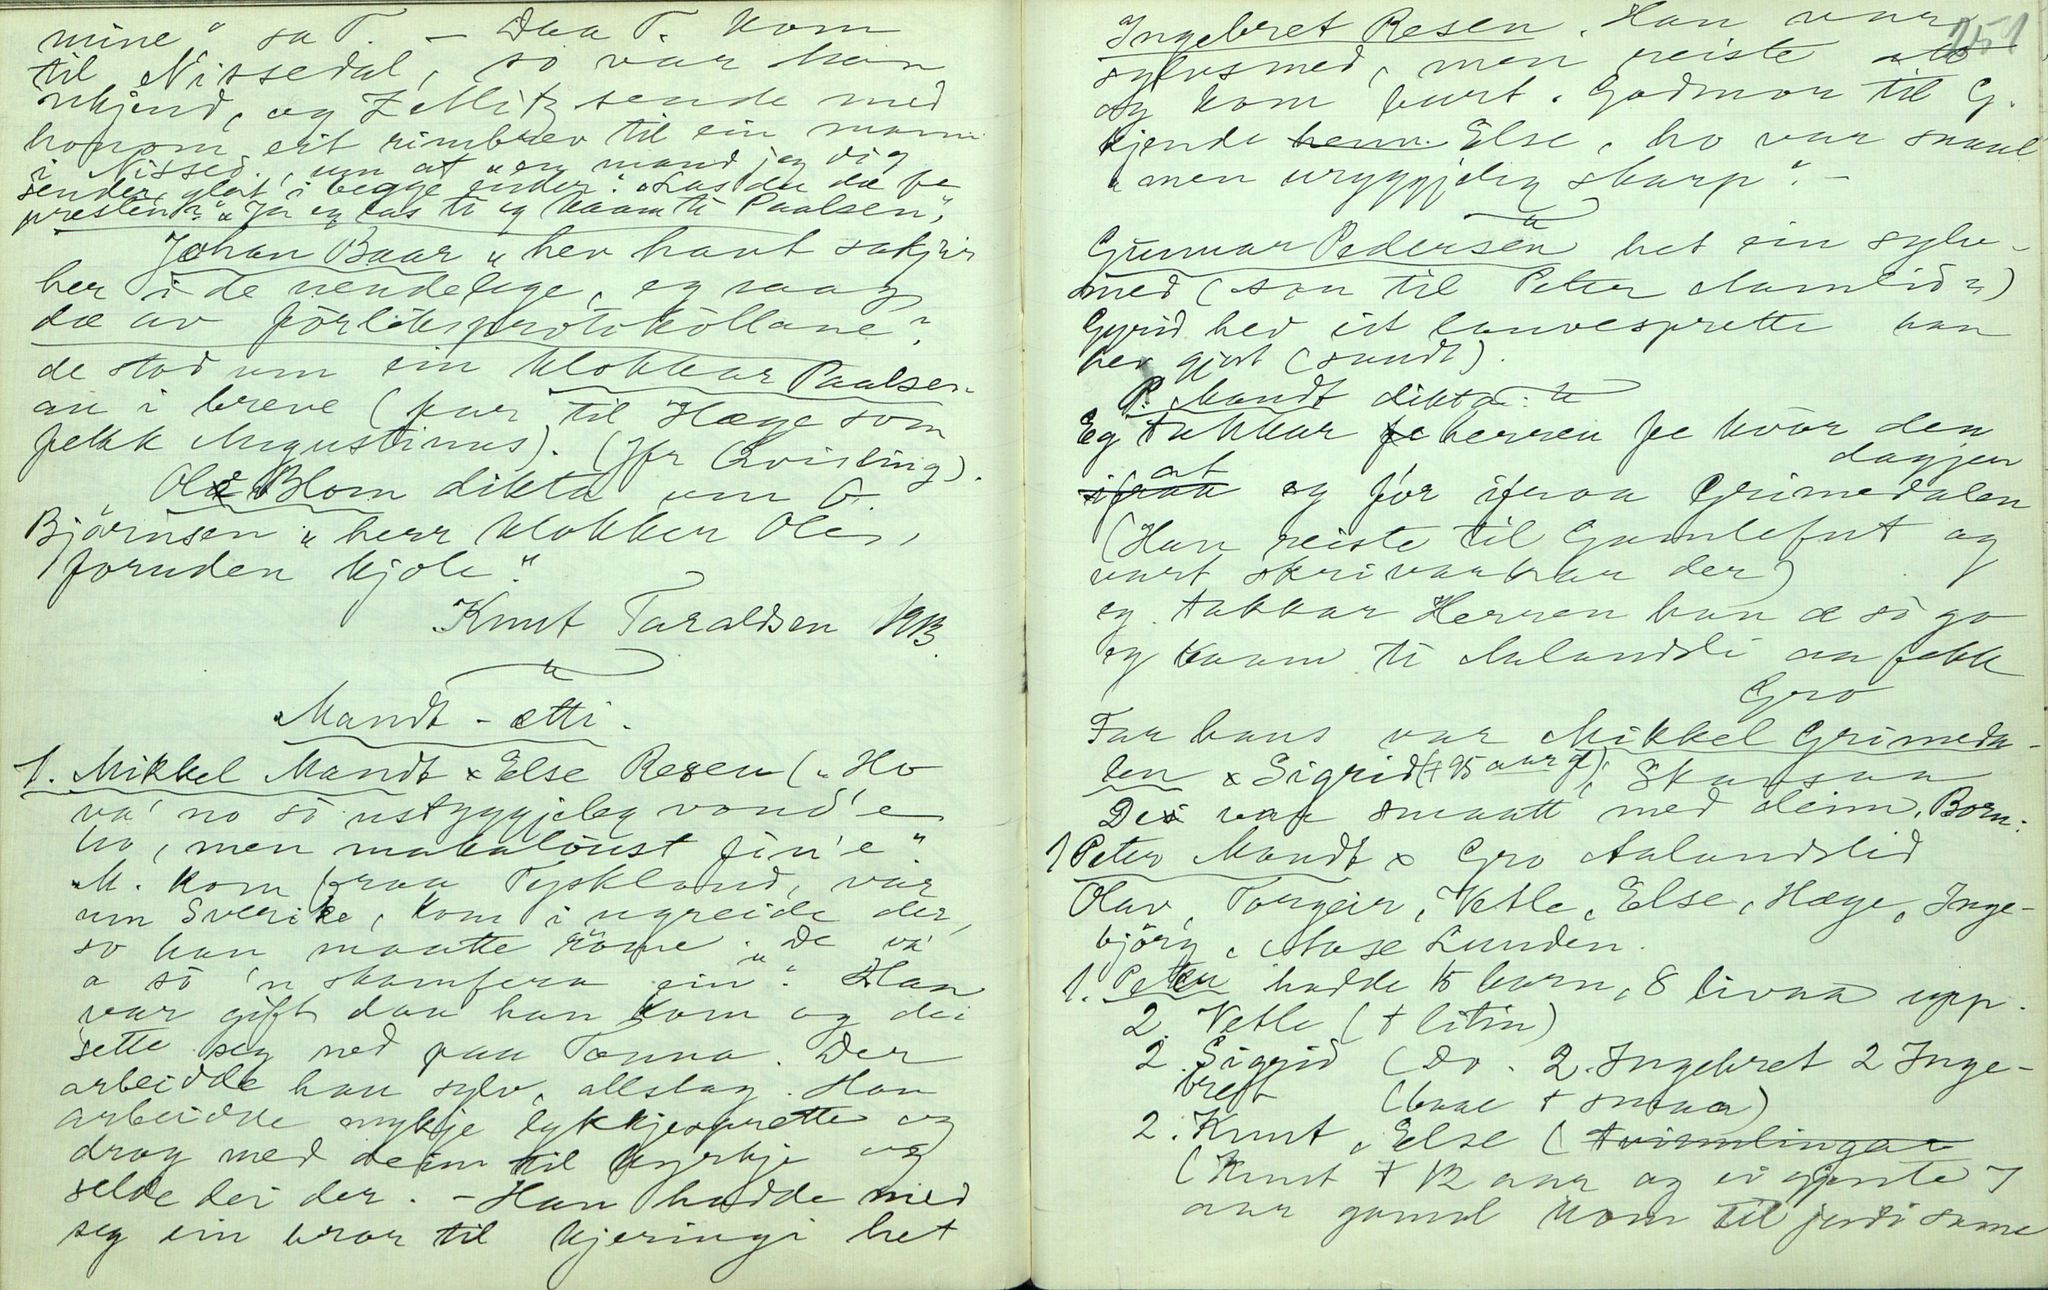 mine" sa T. — Daa T. kom
til Nissedal, so var han
ukjend, og Zettlitz sende med
honom eit rimbrev til ein mann
i Nissed., um at "en mand jeg dig
sender, glat i begge ender". "Las du dæ fe
presten?" "Ja eg las ti eg kaam ti Paalsen".
Johan Baar "hev havt sakjir
her i de uendelege, eg saag
dæ av forliksprotokollane".
de stod um ein klokkar Paalsen
au i breve (far til Hæge som
fekk Augustinus). (Jfr Qvisling).
Ola Blom dikta um O.
Björnsen "herr klokker Ole,
foruden kjole".
Knut Taraldsen 1913.
Mandt-ætti.
1. Mikkel Mandt x Else Resen ("Ho
va' no so ustyggjeleg vond'e
ho, men makalöust fin'e".
M. kom fraa Tyskland, var
um Sverike, kom i ugreide der,
so han maatte röme. "De va'
a so 'n skamfera ein". Han
var gift daa han kom og dei
sette seg ned paa Tonna. Der
arbeidde han sylv, allslag. Han
arbeidde mykje lykkjesprette og
drog med deim til kyrkje og
selde dei der. — Han hadde med
seg ein bror til kjeringi het
251
Ingebret Resen. Han var
sylvsmed, men reiste
og kom burt. Godmor til G.
kjende henn. Else, ho var snaal
"men uryggjeleg skarp". —
Gunnar Pedersen het ein sylv-
smed (son til Peter Aamlid?)
Gyrid hev eit lauvesprette han
hev gjort (sundt).
P. Mandt dikta:
Eg takkar fe herren fe kvar den
dagjen
ifraa at eg for ifraa Grimedalen
(Han reiste til Gamlefut og
vart skrivarkar der)
eg takkar Herren han æ so go
eg kaam ti Aalandsli aa fekk
Gro
Far hans var Mikkel Grimeda-
len x Sigrid (+ 95 aar g.), Skarsaa
Dei var smaatt med deim. Born:
1 Peter Mandt x Gro Aalandslid
Olav, Torgeir, Vetle, Else, Hæge, Inge-
björg, Aase Lunden.
1. Peter hadde 15 barn, 8 livaa upp.
2. Vetle (+ litin)
2. Sigrid (Do. 2. Ingebret 2 Inge-
bret (baae + smaa)
2. Knut, Else (tvismlingar
(Knut + 12 aar og ei gjente 7
aar gamal kom til jordi same